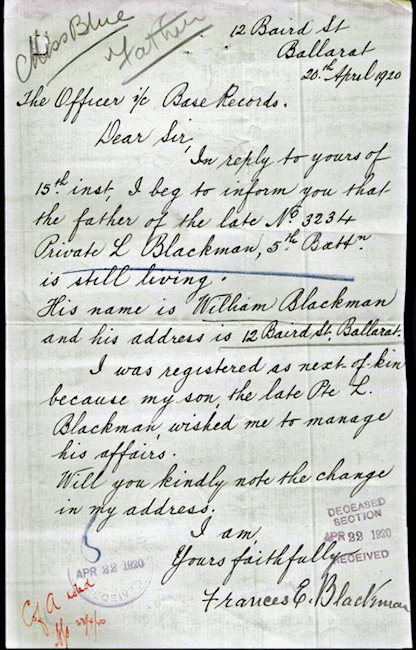 Miss Blue
Father
12 Baird St
Ballarat
20th April 1920
The Officer i/c Base Records.
Dear Sir,
In reply to yours of
15th inst, I beg to inform you that
the father of the late No 3234
Private L Blackman, 5th Battn
is still living.
His name is William Blackman
and his address is 12 Baird St, Ballarat.
I was registered as next of kin
because my son, the late Pte L.
Blackman, wished me to manage
his affairs.
Will you kindly note the change
in my address.
I am,
Yours faithfully
Frances E. Blackman
DECEASED
SECTION
APR 22 1920
RECEIVED
APR 22 1920
RECEIVED
A